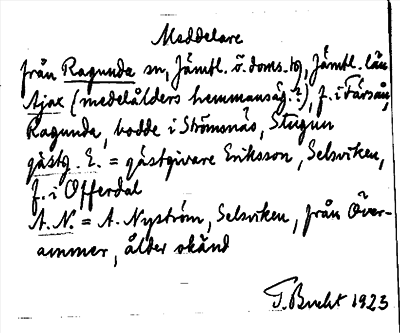 Meddelare
från Ragunda sn, Jämtl. ö. doms. tg, Jämtl. län
Ajax (medelålders hemmansäg.?), f. i Färsån,
Ragunda, bodde i Strömsnäs, Stugun
gästg. E. = gästgivare Eriksson, Selsviken,
f. i Offerdal
A. N. = A. Nyström, Selsviken, från Över-
ammer, ålder okänd
T. Bucht 1923